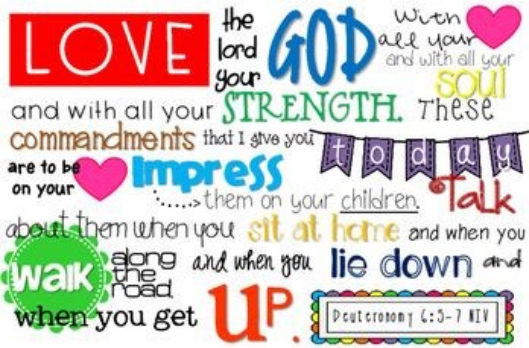 LOVE the lord your GOD with all your
and with all your soul
and with all your STRENGTH. These
commandments that I give you today
are to be on your impress
them on your children. Talk
about them when you sit at home and when you
walk along the road and when you lie down and
when you get up.
Deuteronomy 6:5-7 NIV